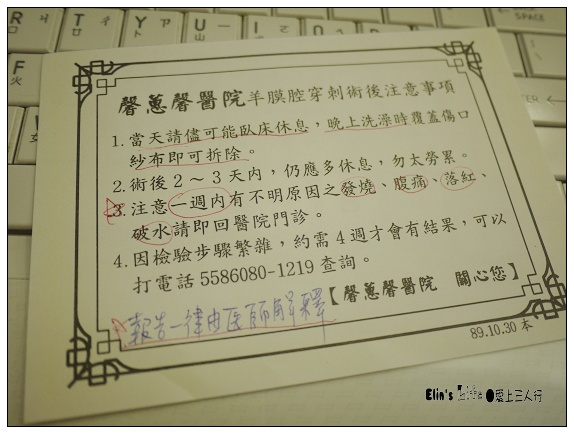 R T Y U I O P
ㄐ ㄔ ㄗ
F
火
SPACE
ENTER
馨蕙馨醫院羊膜腔穿刺術後注意事項
1.當天請儘可能臥床休息，晚上洗澡時覆蓋傷口
紗布即可拆除。
2.術後2～3天內，仍應多休息，勿太勞累。
3.注意一週內有不明原因之發燒、腹痛、落紅、
破水請即回醫院門診。
4.因檢驗步驟繁雜，約需4週才會有結果，可以
打電話5586080-1219查詢。
【馨蕙馨醫院 關心您】
報告一律由醫師解釋
89.10.30本
Elin's Life ●愛上三人行